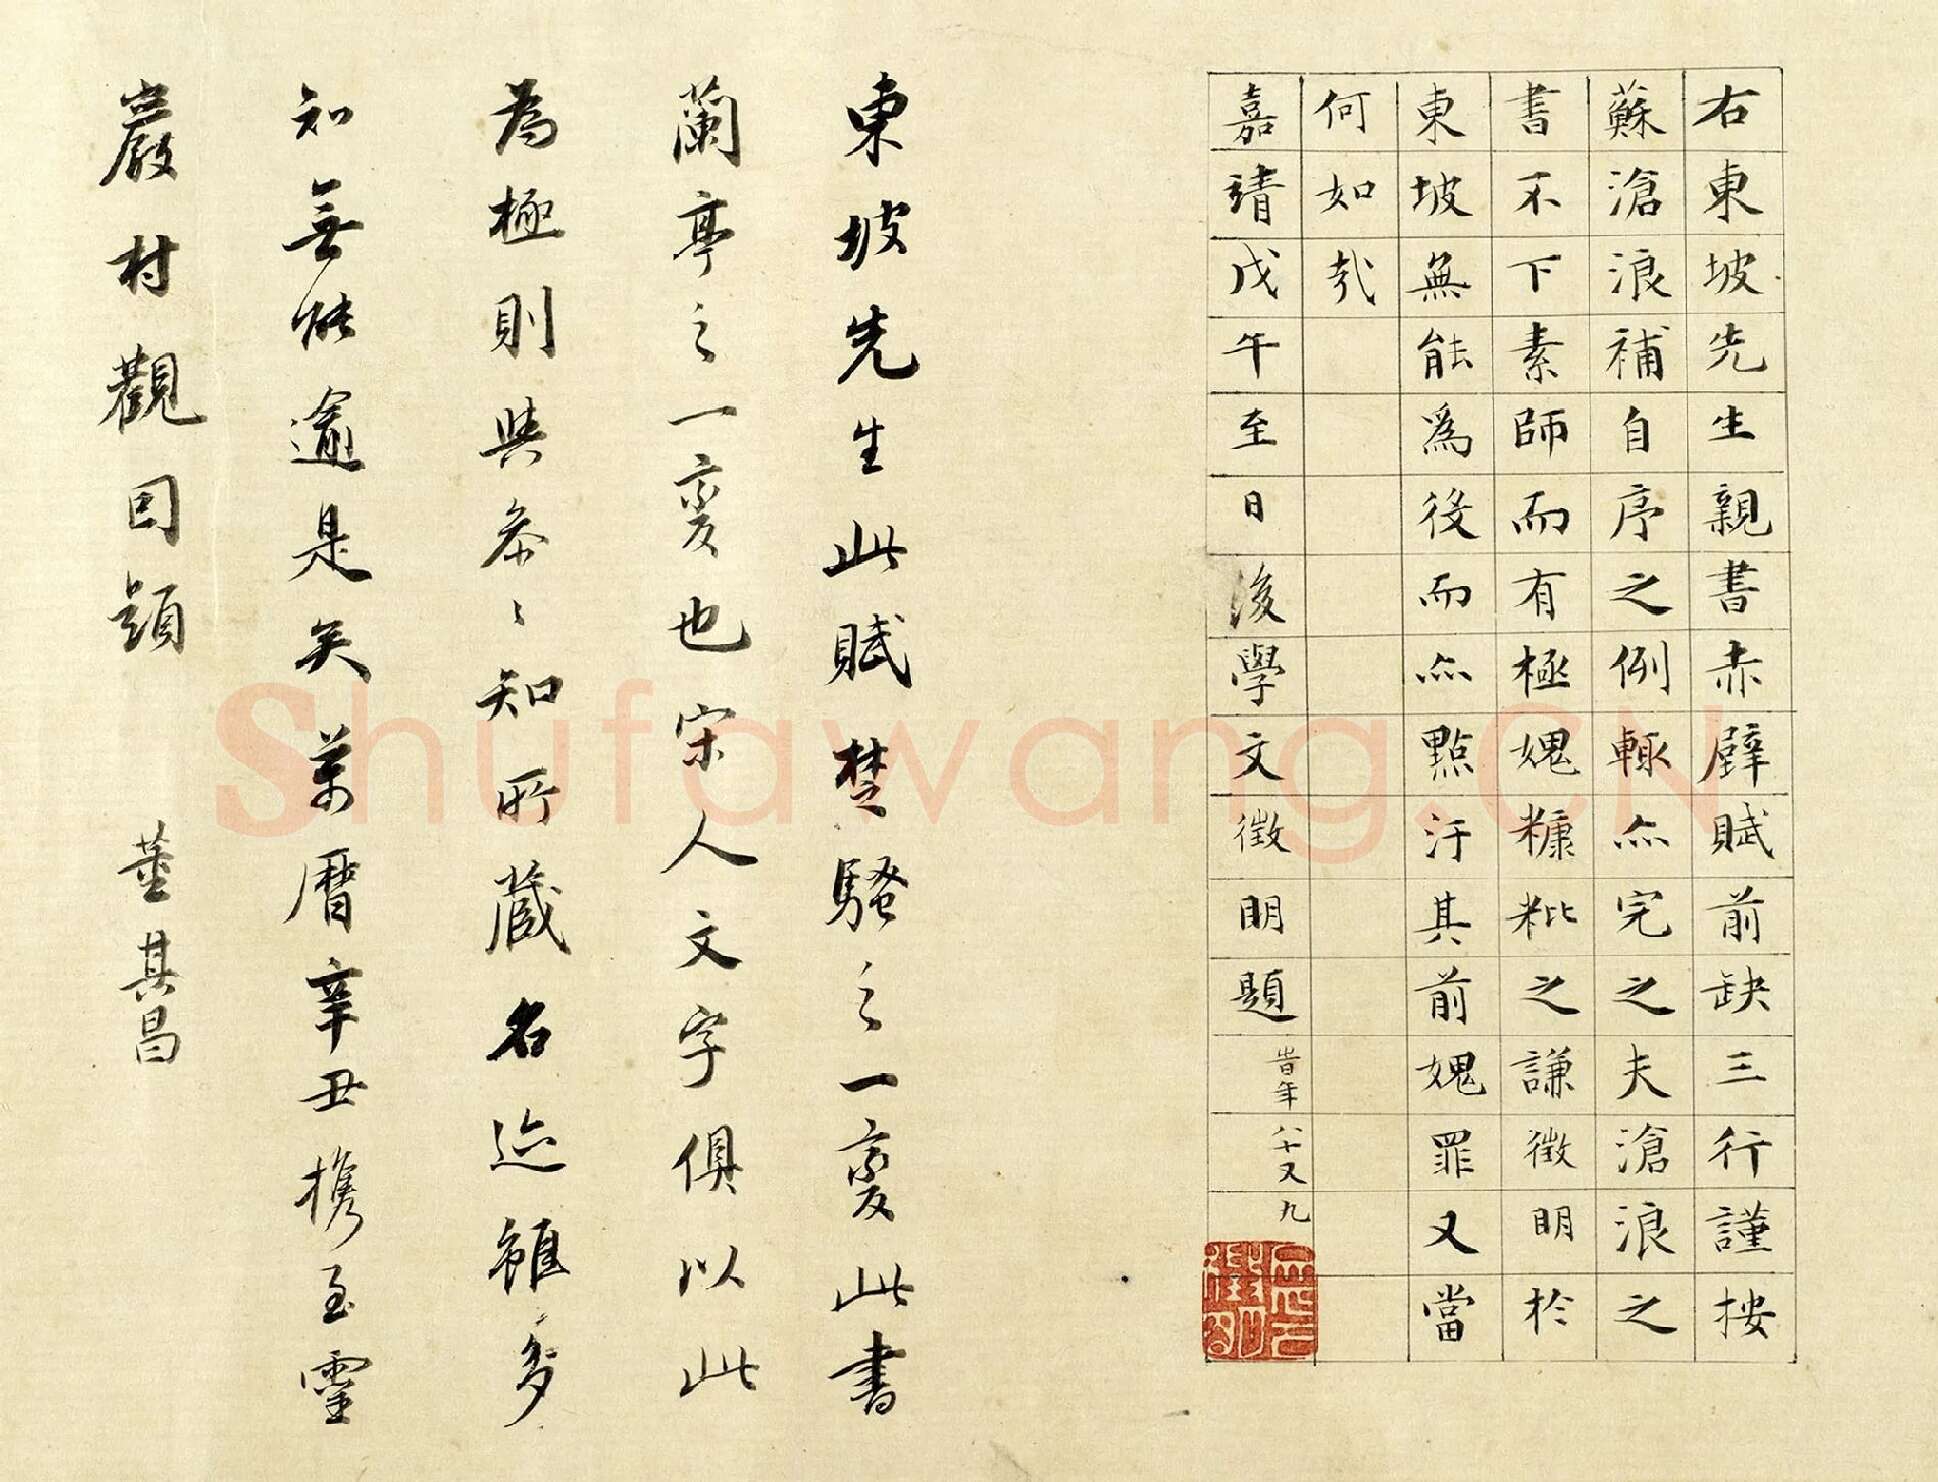 右東坡先生親書赤壁賦前缺三行謹按
蘇滄浪補自序之例輒亦完之夫滄浪之
書不下素師而有極媿糠粃之謙徵明於
東坡無能爲役而亦點汙其前媿罪又當
何如哉
嘉靖戊午至日後學文徵明題旹年八十又九
東坡先生此賦楚騷之一變此書
蘭亭之一變也宋人文字俱以此
為極則與參參知所藏名迹雖多
知無能逾是矣萬曆辛丑攜至靈
巖村觀因題 董其昌
Shufawang.CN